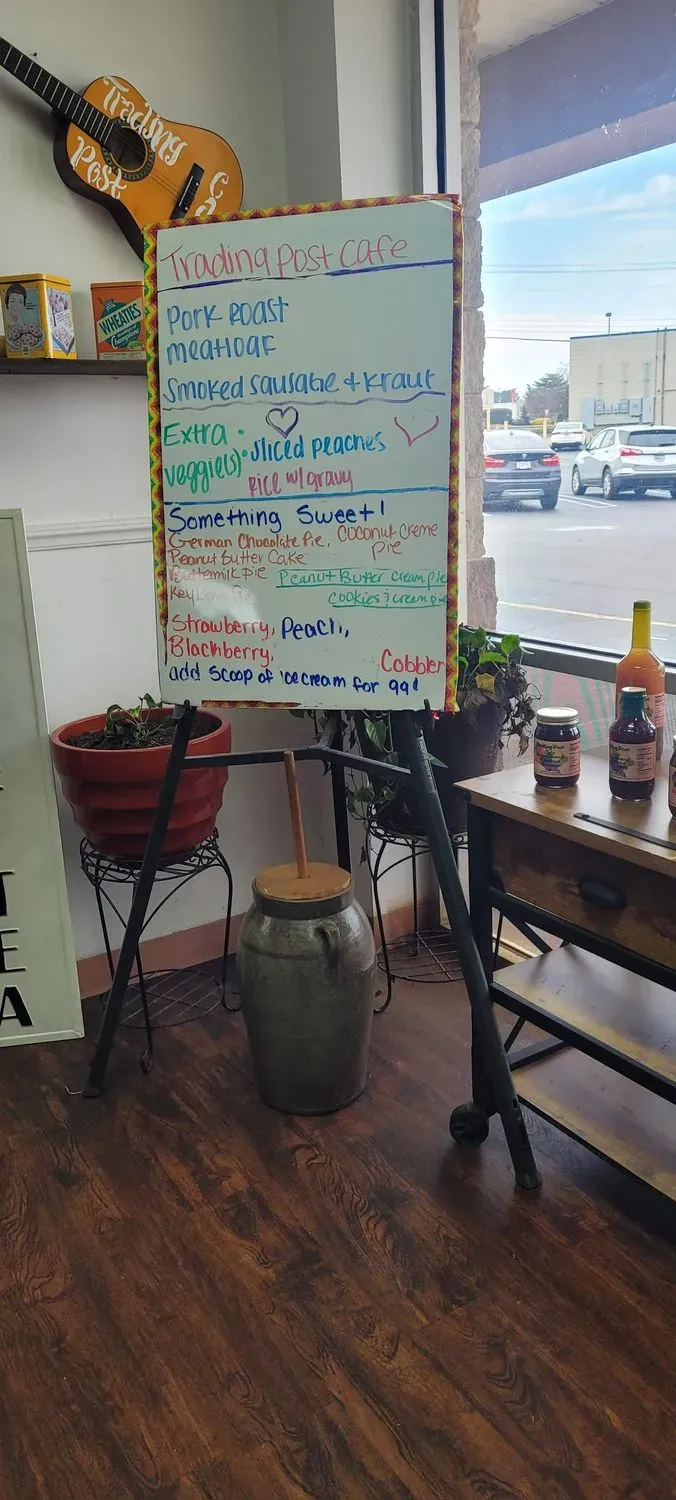 Trading
Post
Ca
WHEATIES
Trading Post Cafe
Pork Roast
meatloaf
Smoked sausage + kraut
Extra
veggie(s)
Sliced peaches
Rice w/ gravy
Something Sweet!
German Chocolate Pie, Coconut Creme Pie
Peanut Butter Cake
Buttermilk Pie Peanut Butter cream pie
Key Lime Pie cookies & cream pie
Strawberry, Peach,
Blackberry, Cobbler
add scoop of ice cream for 99¢
Trading Post
T
E
A